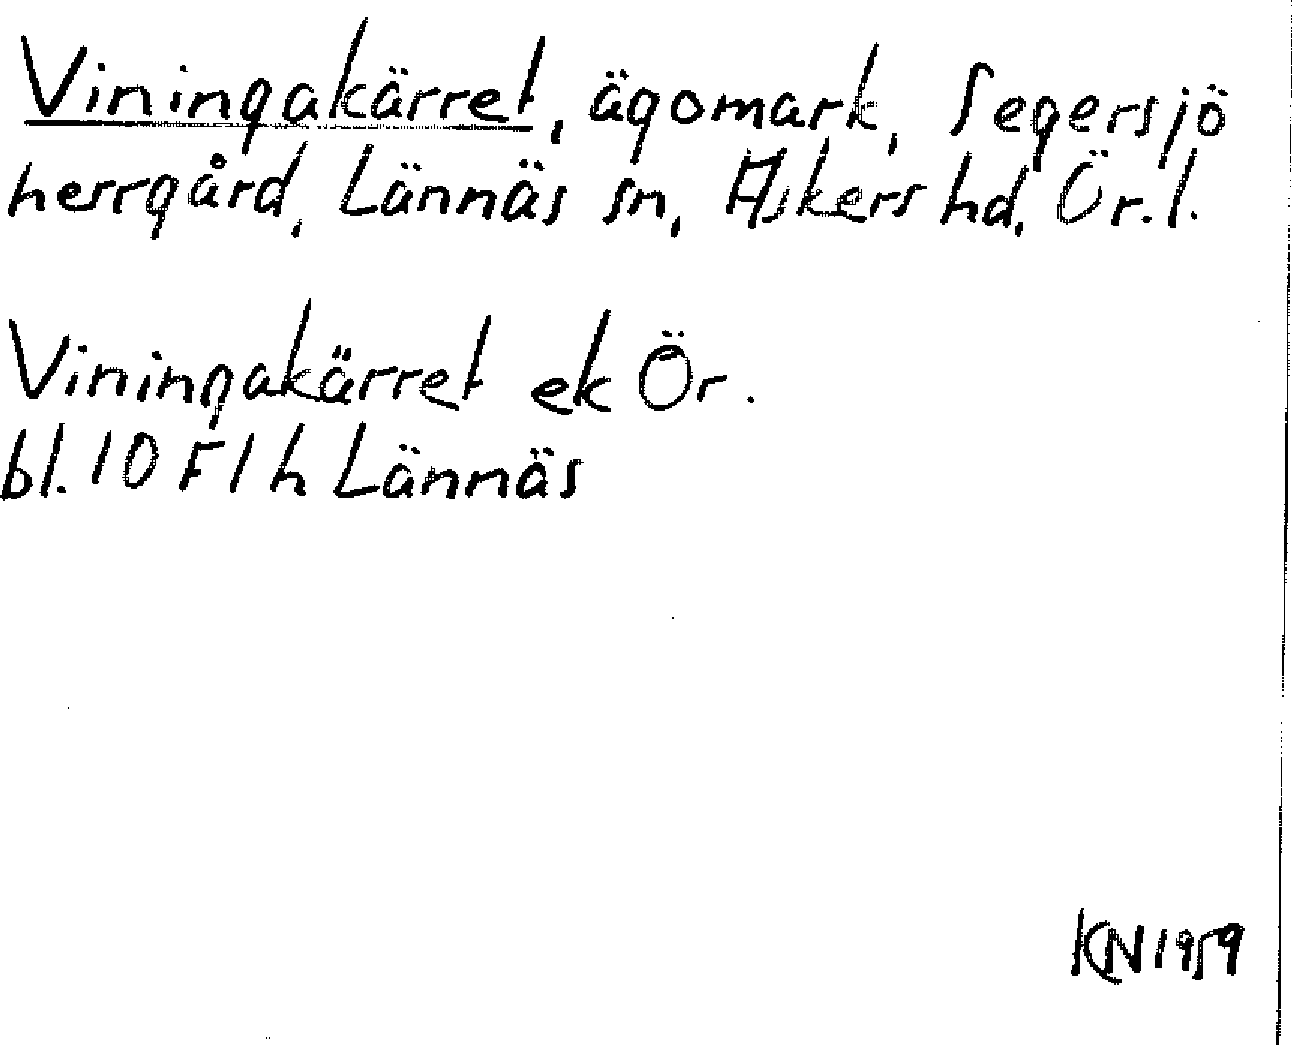 Viningakärret, ägomark, Segersjö
herrgård, Lännäs sn, Askers hd, Ör.l.
Viningakärret ek Ör.
bl. 10 F 1 h Lännäs
KN 1959